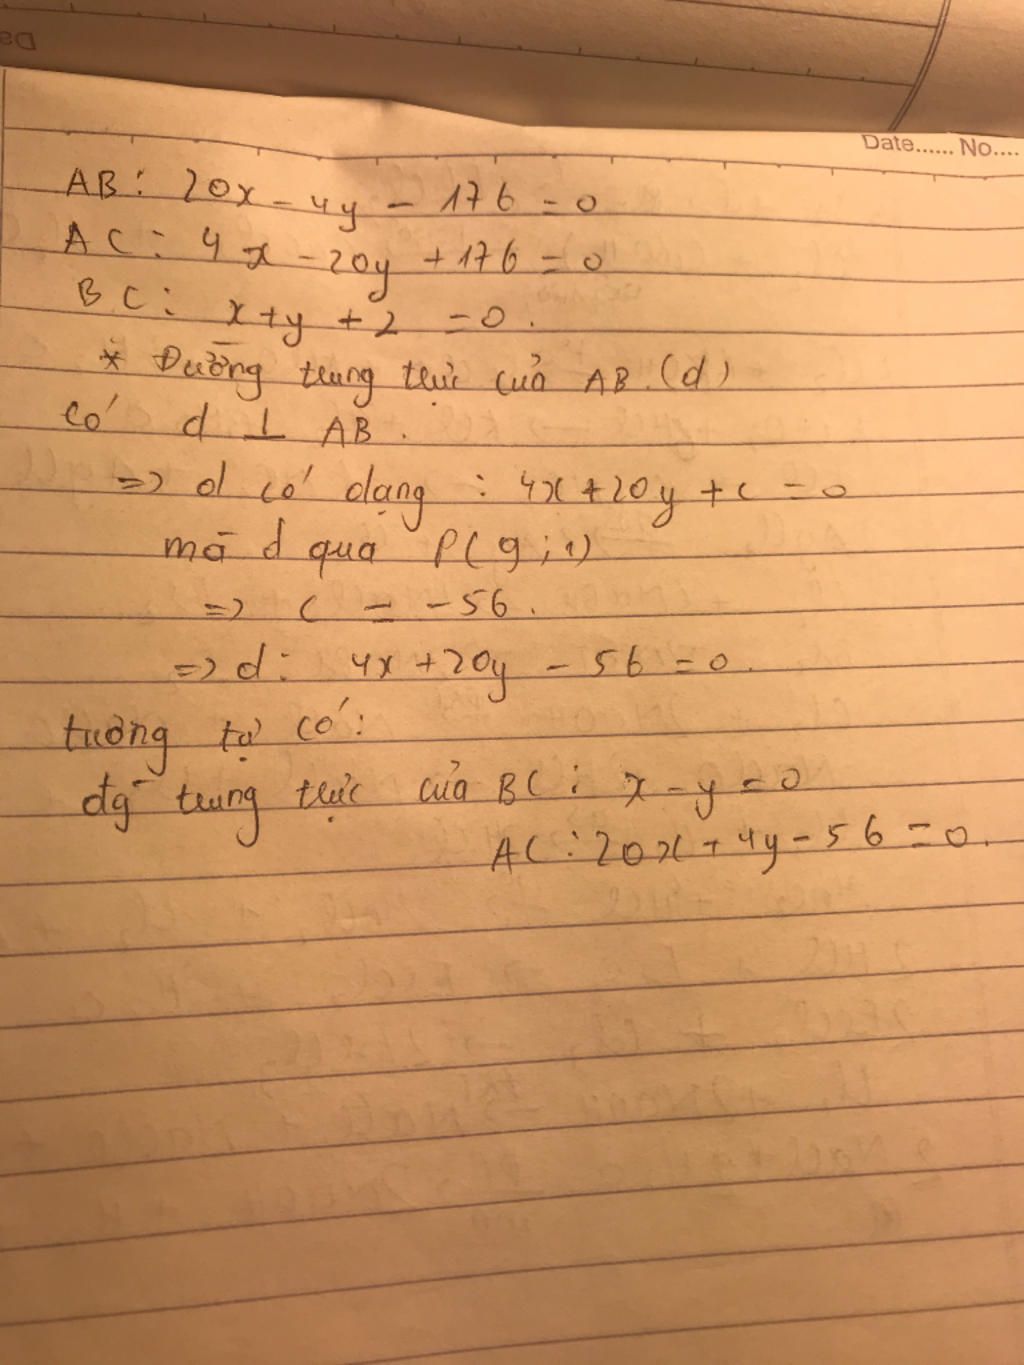 Date...... No....
AB: 20x - 4y - 176 = 0
AC: 4x - 20y + 176 = 0
BC: x + y + 2 = 0.
* Đường trung trực của AB (d)
Có d ⊥ AB.
=> d có dạng : 4x + 20y + c = 0
mà d qua P(9;1)
=> c = -56.
=> d: 4x + 20y - 56 = 0.
tương tự có:
đg trung trực của BC: x - y = 0
AC: 20x + 4y - 56 = 0.